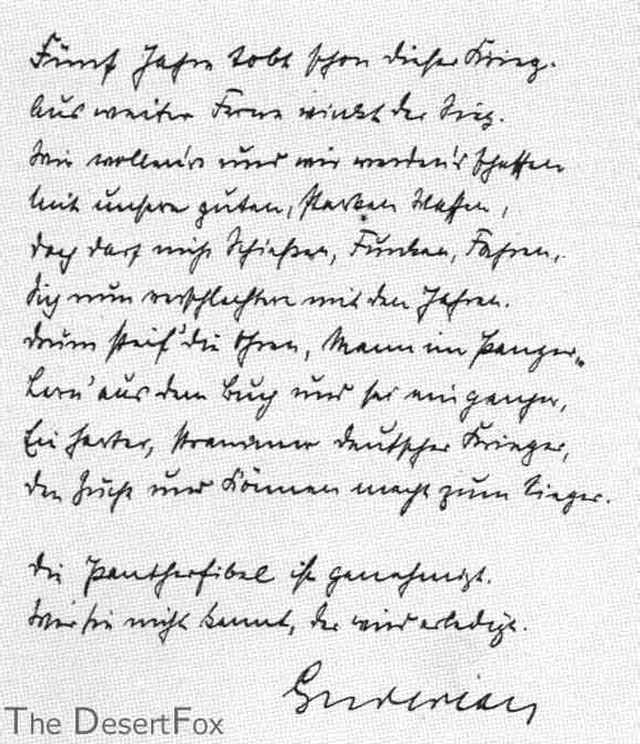 Fünf Jahre tobt schon dieser Krieg.
Aus weiter Ferne winkt der Sieg.
Wir wollen's und wir werden's schaffen
Mit unsern guten, starken Waffen,
doch darf nicht Schießen, Funken, Fahren,
Sich nun verschlechtern mit den Jahren.
Drum steif' die Ohren, Mann im Panzer,
Lern' aus dem Buch und sei ein ganzer,
Ein harter, strammer deutscher Krieger,
den Zucht und Können macht zum Sieger.
Die Pantherfibel ist genehmigt.
Wer sie nicht kennt, der wird erledigt.
Guderian
The DesertFox